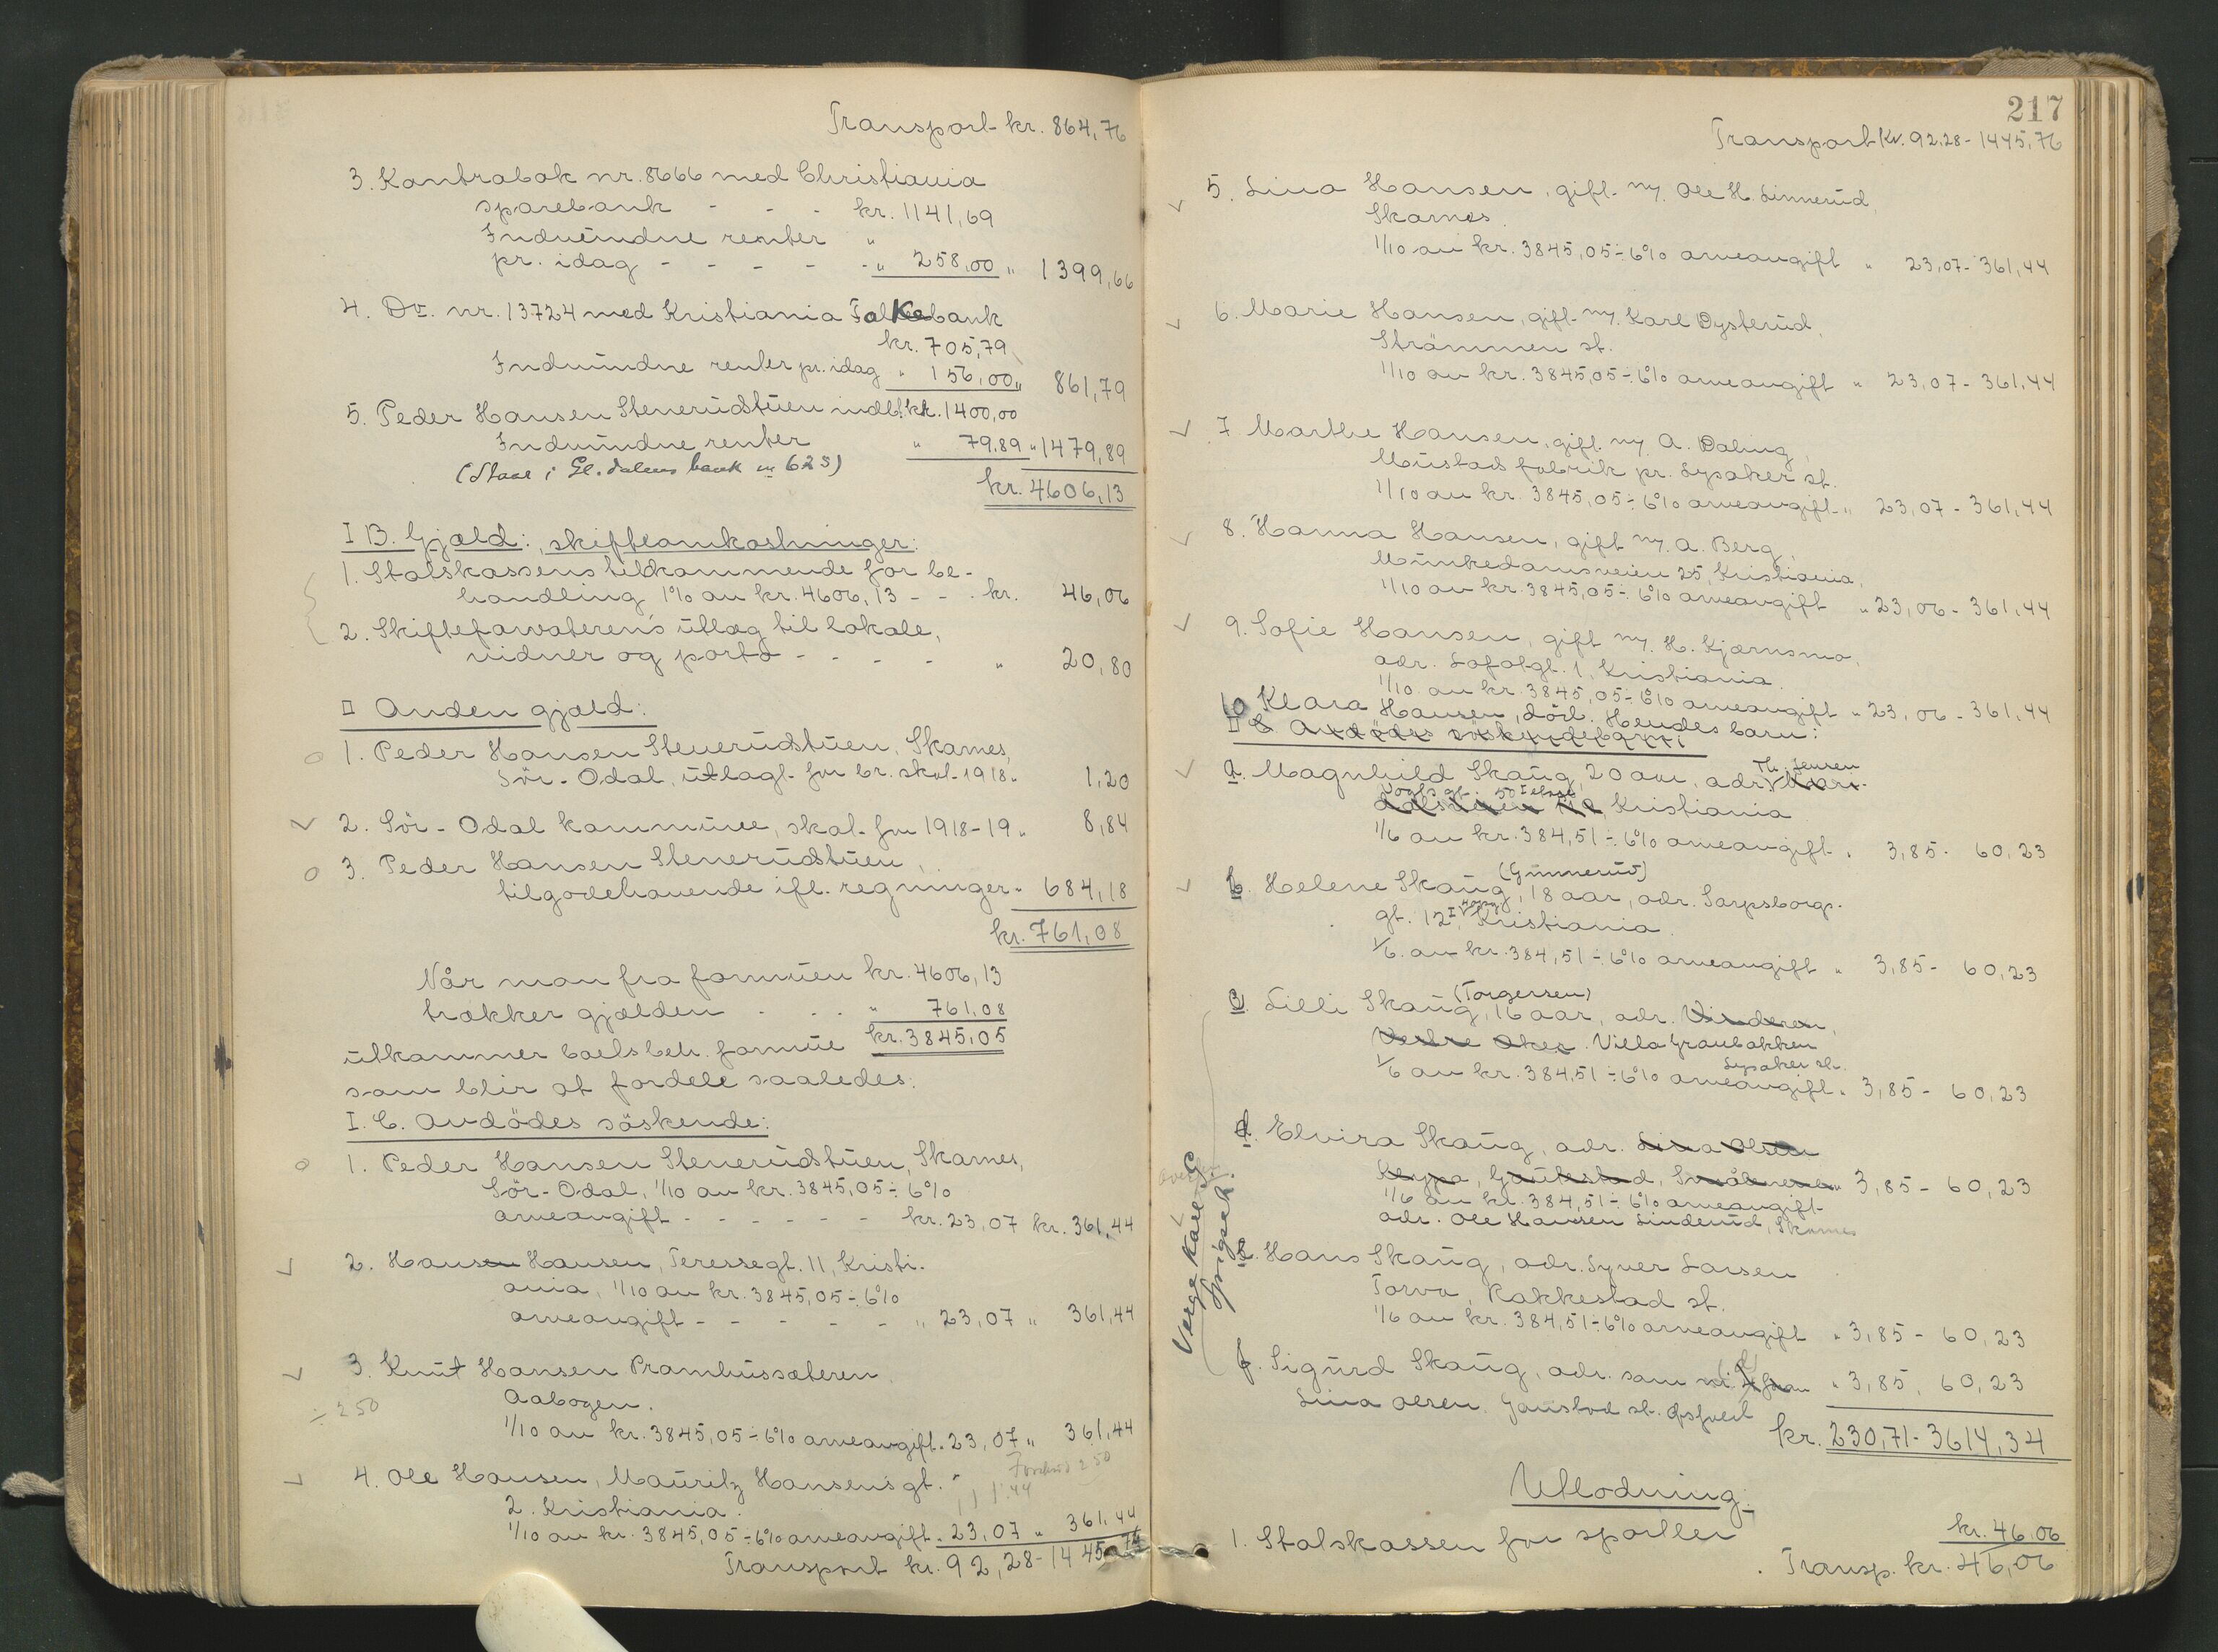 Transport kr. 864,76
3. Kontrabok nr. 8666 med Christiania
sparebank - - - kr. 1141,69
Indvundne renter "
pr. idag - - - - - " 258,00 " 1399,66
4. Do. nr. 13724 med Kristiania Folkebank
kr. 705,79
Indvundne renter pr. idag " 156,00 " 861,79
5. Peder Hansen Stenerudstuen indb. kr. 1400,00
Indvundne renter " 79.89 " 1479,89
kr. 4606,13
I B. Gjæld: skifteomkostninger:
1. Statskassens tilkommende for be-
handling 1% av kr. 4606,13 - - - kr. 46,06
2. Skifteforvalterens utlæg til lokale,
vidner og porto - - - - " 20,80
II Anden gjæld:
1. Peder Hansen Stenerudstuen, Skarnes,
Sör-Odal, utlagt for br. skat. 1918 " 1,20
2. Sör-Odal kommune, skat for 1918-19 " 8,84
3. Peder Hansen Stenerudstuen,
tilgodehavende ifl. regninger " 684,18
kr. 761,08
Når man fra formuen kr. 4606,13
trækker gjælden - - - " 761,08
utkommer boets beh. formue kr. 3845,05
som blir at fordele saaledes:
I. C. Avdödes söskende:
o 1. Peder Hansen Stenerudstuen, Skarnes,
Sör-Odal, 1/10 av kr. 3845,05 ÷ 6%
arveavgift - - - - - - kr. 23,07 kr. 361,44
2. Hansen Hansen, Teressegt. 11, Kristi-
ania, 1/10 av kr. 3845,05 ÷ 6%
arveavgift - - - - - " 23,07 " 361,44
3. Knut Hansen Pramhussæteren
÷ 250 Aabogen.
1/10 av kr. 3845,05 ÷ 6% arveavgift " 23,07 " 361,44
Forskud 250
4. Ole Hansen, Mauritz Hansens gt.
111.44
2. Kristiania.
1/10 av kr. 3845,05 ÷ 6% arveavgift " 23,07 " 361,44
Transport kr. 92,28 - 1445,76
217
Transport kr. 92,28 - 1445,76
5. Lina Hansen, gift m/ Ole H. Linnerud,
Skarnes.
1/10 av kr. 3845,05 ÷ 6% arveavgift " 23,07 - 361,44
6. Marie Hansen, gift m/ Karl Dysterud,
Strömmen st.
1/10 av kr. 3845,05 ÷ 6% arveavgift " 23,07 - 361,44
7 Marthe Hansen, gift m/ A. Daling,
Mustad fabrik pr. Lysaker st.
1/10 av kr. 3845,05 ÷ 6% arveavgift " 23,07 - 361,44
8. Hanna Hansen, gift m/ A. Berg,
Munkedamsveien 25, Kristiania,
1/10 av kr. 3845,05 ÷ 6% arveavgift " 23,06 - 361,44
9. Sofie Hansen, gift m/ H. Kjærnsmo,
adr. Lofotgt. 1, Kristiania.
1/10 av kr. 3845,05 ÷ 6% arveavgift " 23,06 - 361,44
10 Klara Hansen, död. Hendes barn:
II C Avdödes söskendebarn:
a. Magnhild Skaug, 20 aar, adr. Th. Jensen
Vogts gt. 50 I etage Kristiania
1/6 av kr. 384,51 ÷ 6% arveavgift " 3,85 - 60,23
(Gunnerud)
b. Helene Skaug, 18 aar, adr. Sarpsborg-
gt. 12 I, Kristiania.
1/6 av kr. 384,51 ÷ 6% arveavgift " 3,85 - 60,23
(Torgersen)
c. Lilli Skaug, 16 aar, adr. Vinderen,
Vestre Aker. Villa Graubakken
Lysaker st.
1/6 av kr. 384,51 ÷ 6% arveavgift " 3,85 - 60,23
d. Elvira Skaug, adr. Lina Olsen
Keppa, Gautestad, Smålenene " 3,85 - 60,23
1/6 av kr. 384,51 ÷ 6% arveavgift
adr. Ole Hansen Linderud, Skarnes
e. Hans Skaug, adr. Syver Larsen
Torva, Rakkestad st.
1/6 av kr. 384,51 ÷ 6% arveavgift " 3,85 - 60,23
f. Sigurd Skaug, adr. som " 3,85. 60,23
Lina Olsen
kr. 230,71 - 3614,34
Utlodning.
1. Statskassen for sportler kr. 46,06
Transp. kr. 46,06